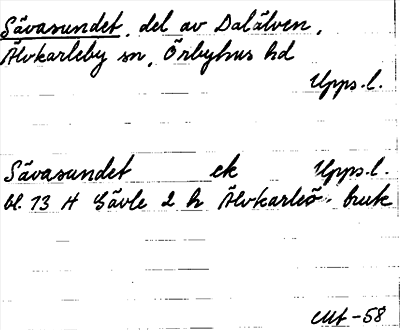 Sävasundet, del av Dalälven,
Älvkarleby sn, Örbyhus hd
Upps.l.
Sävasundet ek Upps.l.
bl. 13 H Gävle 2 h Älvkarleö bruk
-58